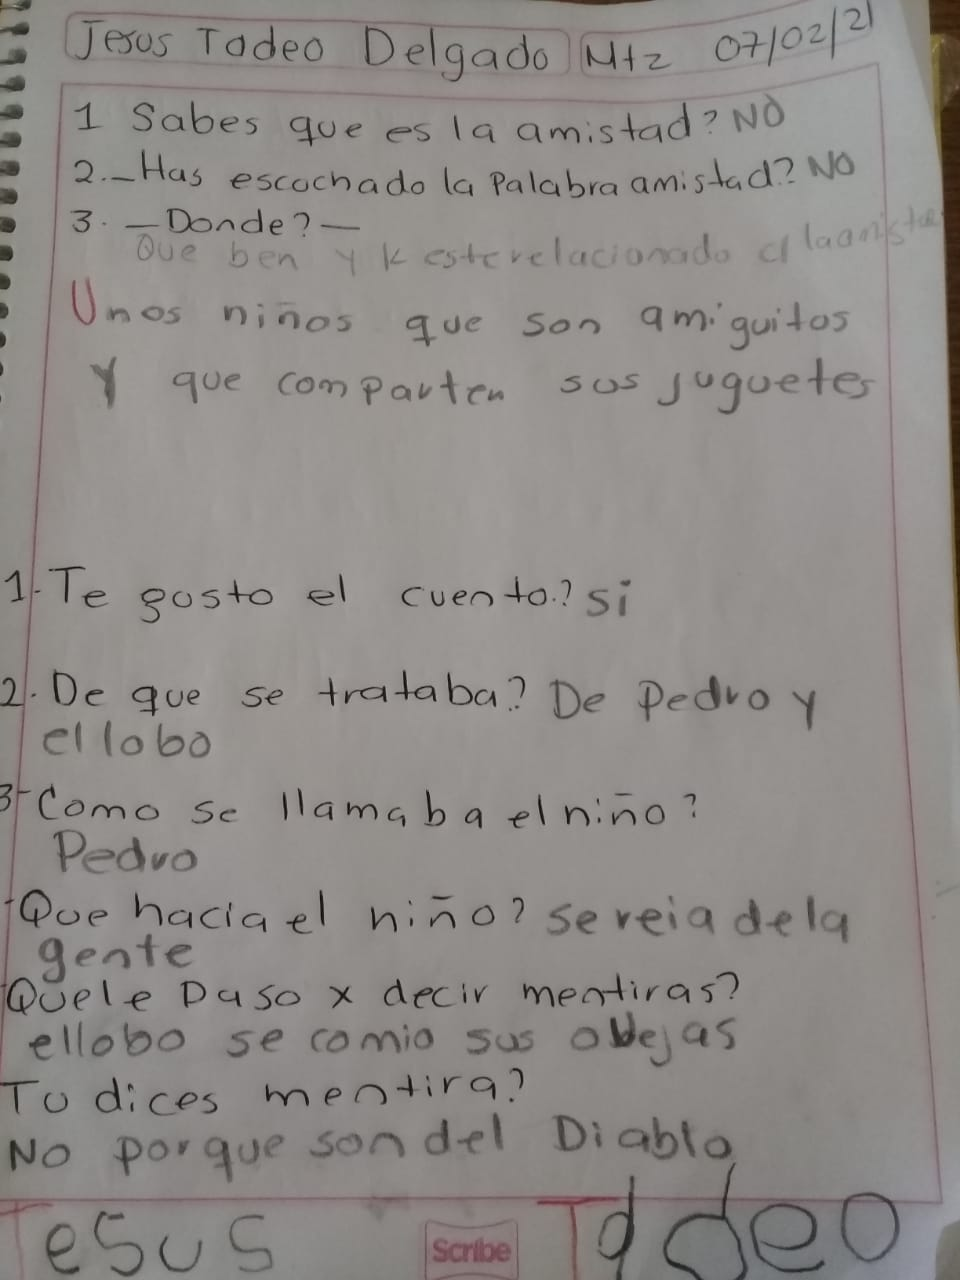 Jesus Tadeo Delgado Mtz 07/02/21
1 Sabes que es la amistad? NO
2._ Has escochado la Palabra amistad? NO
3. _ Donde? _
Que ben y k este relacionado a la amista
Unos niños que son amiguitos
Y que comparten sus juguetes
1.- Te gusto el cuento.? si
2. De que se trataba? De Pedro y
el lobo
3- Como se llamaba el niño?
Pedro
- Que hacia el niño? se reia de la
gente
Quele Paso x decir mentiras?
el lobo se comio sus obejas
Tu dices mentira?
No porque son del Diablo
Jesus Tadeo
Scribe